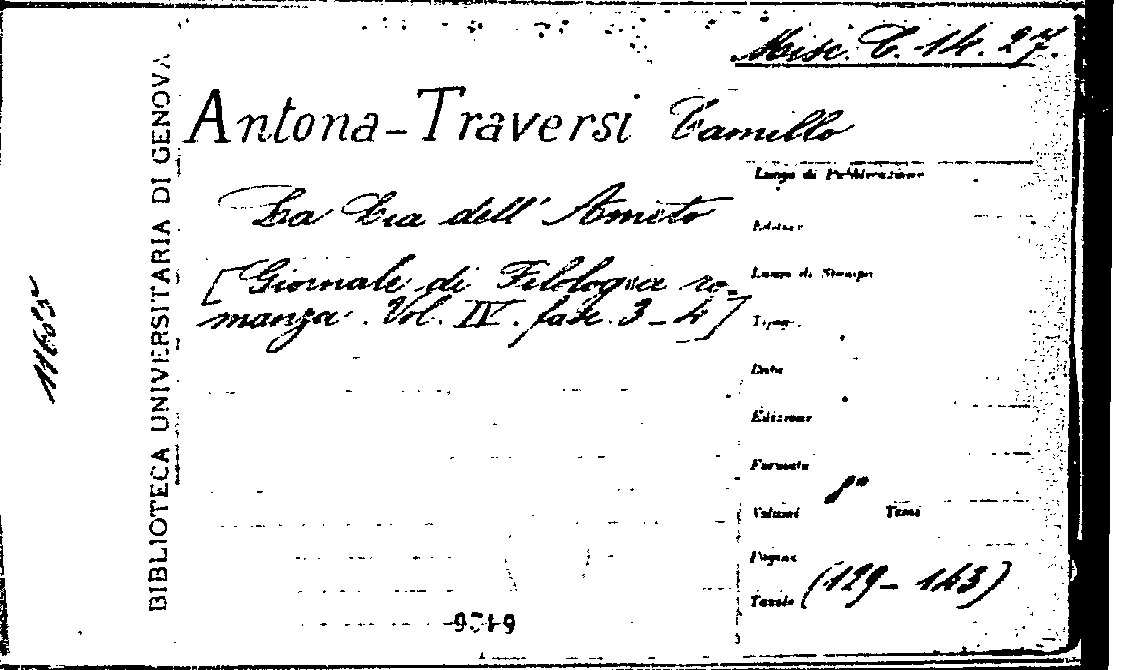 Misc. C. 14. 27.
Antona-Traversi Camillo
La Lia dell' Ameto
[Giornale di Filologia ro-
manza. Vol. IV. fasc. 3-4]
BIBLIOTECA UNIVERSITARIA DI GENOVA
Luogo di Pubblicazione
Editore
Luogo di Stampa
Tipogr.
Data
Edizione
Formato
8°
Volumi Tomi
Pagine
(129-143)
Tavole